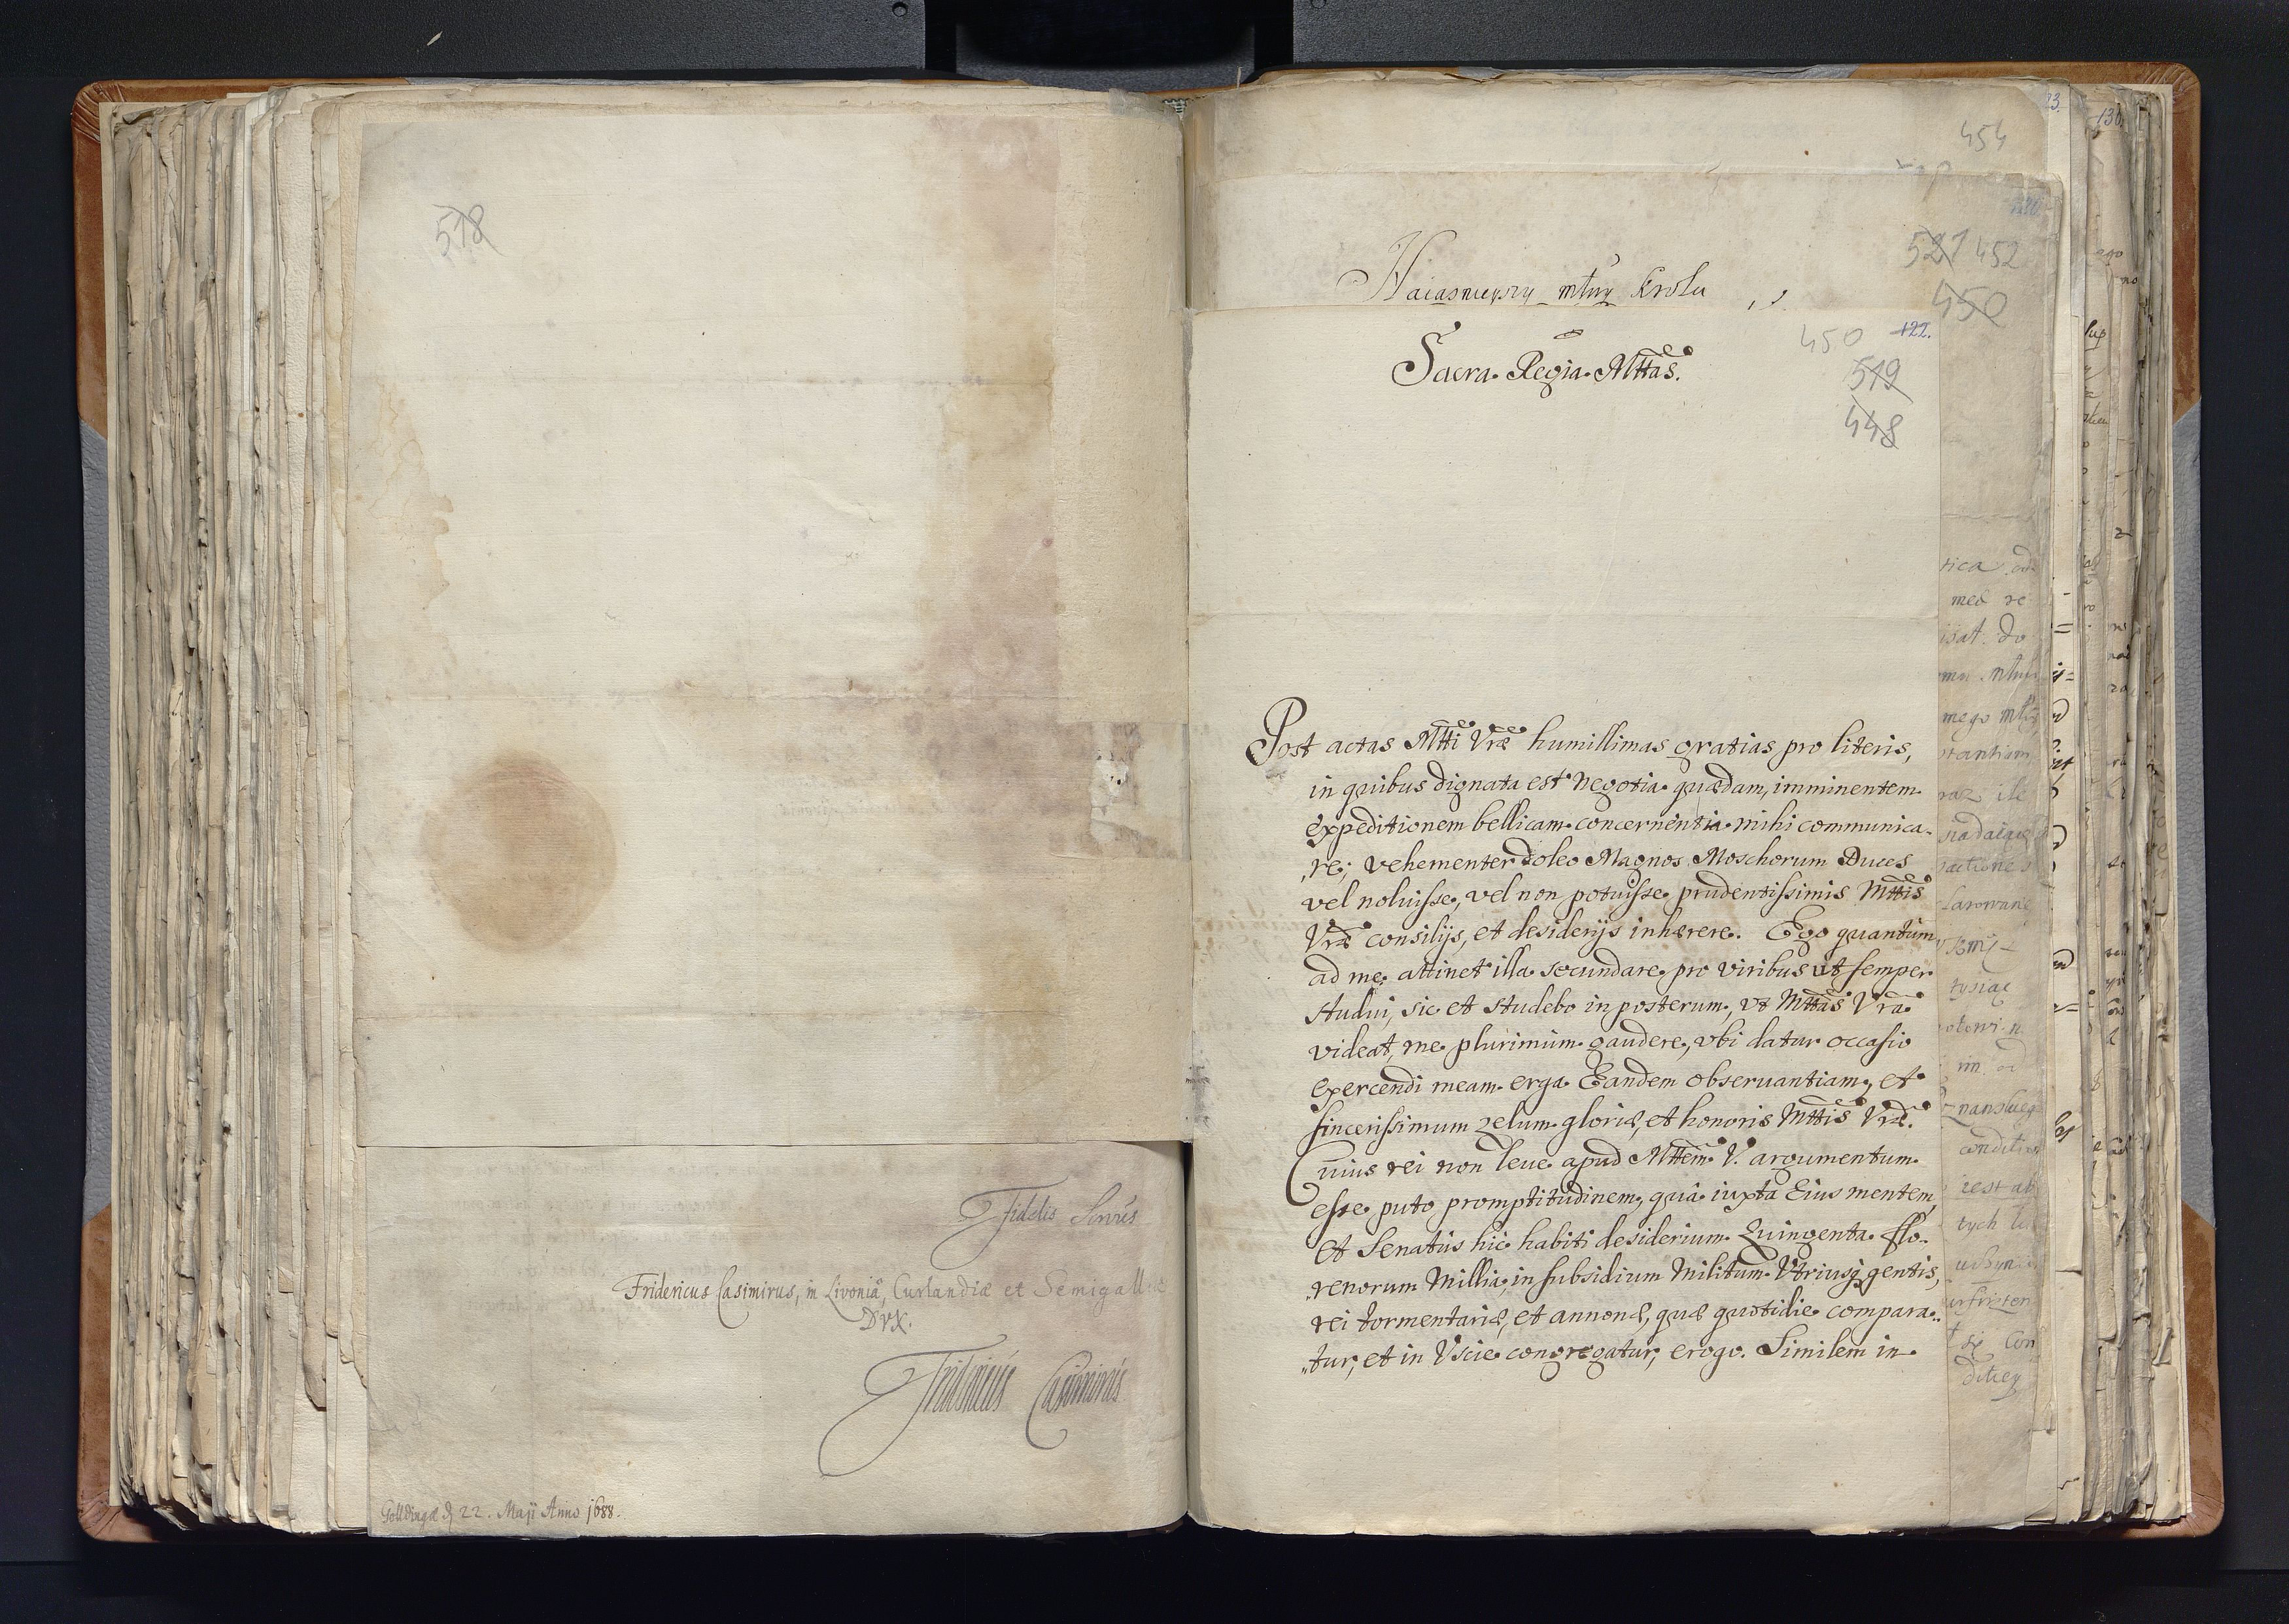 518
Fidelis Servus
Fridericus Casimirus, in Livoniâ, Curlandiæ et Semigalliæ
Dvx.
Fridericus Casimirus
Golldingæ d 22. Maji Anno 1688.
454
521 452
Naiasnieyszy młwy Krolu
450
450 122.
Sacra Regia Mttas.
519
448
Post actas Mtti Vræ humillimas gratias pro literis,
in quibus dignata est negotia quædam, imminentem
expeditionem bellicam concernentia mihi communica-
re; vehementer doleo Magnos Moschorum Duces
vel noluisse, vel non potuisse prudentissimis Mttis
Vræ consilijs, et desiderijs inhærere. Ego quantum
ad me attinet illa secundare pro viribus ut semper
studui, sic et studebo in posterum, vt Mttas Vra
videat, me plurimum gaudere, vbi datur occasio
exercendi meam erga Eandem observantiam, et
sincerissimum zelum gloriæ, et honoris Mttis Vræ.
Cuius rei non leue apud Mttem V. argumentum
esse puto promptitudinem, quâ iuxta Eius mentem,
et Senatus hic habiti desiderium Quingenta flo-
renorum Millia in subsidium Militum Vtriusq gentis,
rei tormentariæ, et annonæ, quæ quotidie compara-
tur, et in Vscie congregatur, erogo. Similem in
130